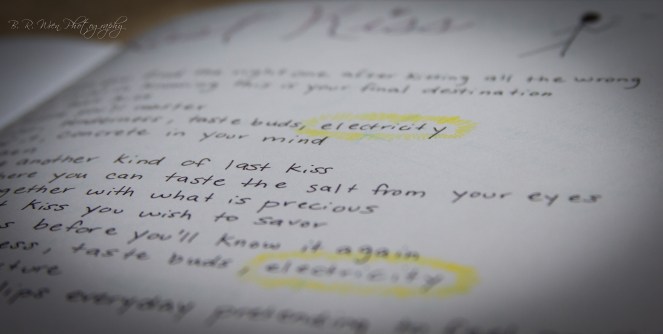 B. R. Wen Photography
Kiss
right one after kissing all the wrong
knowing this is your final destination
matter
tenderness, taste buds, electricity
concrete in your mind
another kind of last kiss
here you can taste the salt from your eyes
gether with what is precious
t kiss you wish to savor
s before you'll know it again
ess, taste buds, electricity
cture
lips everyday pretending